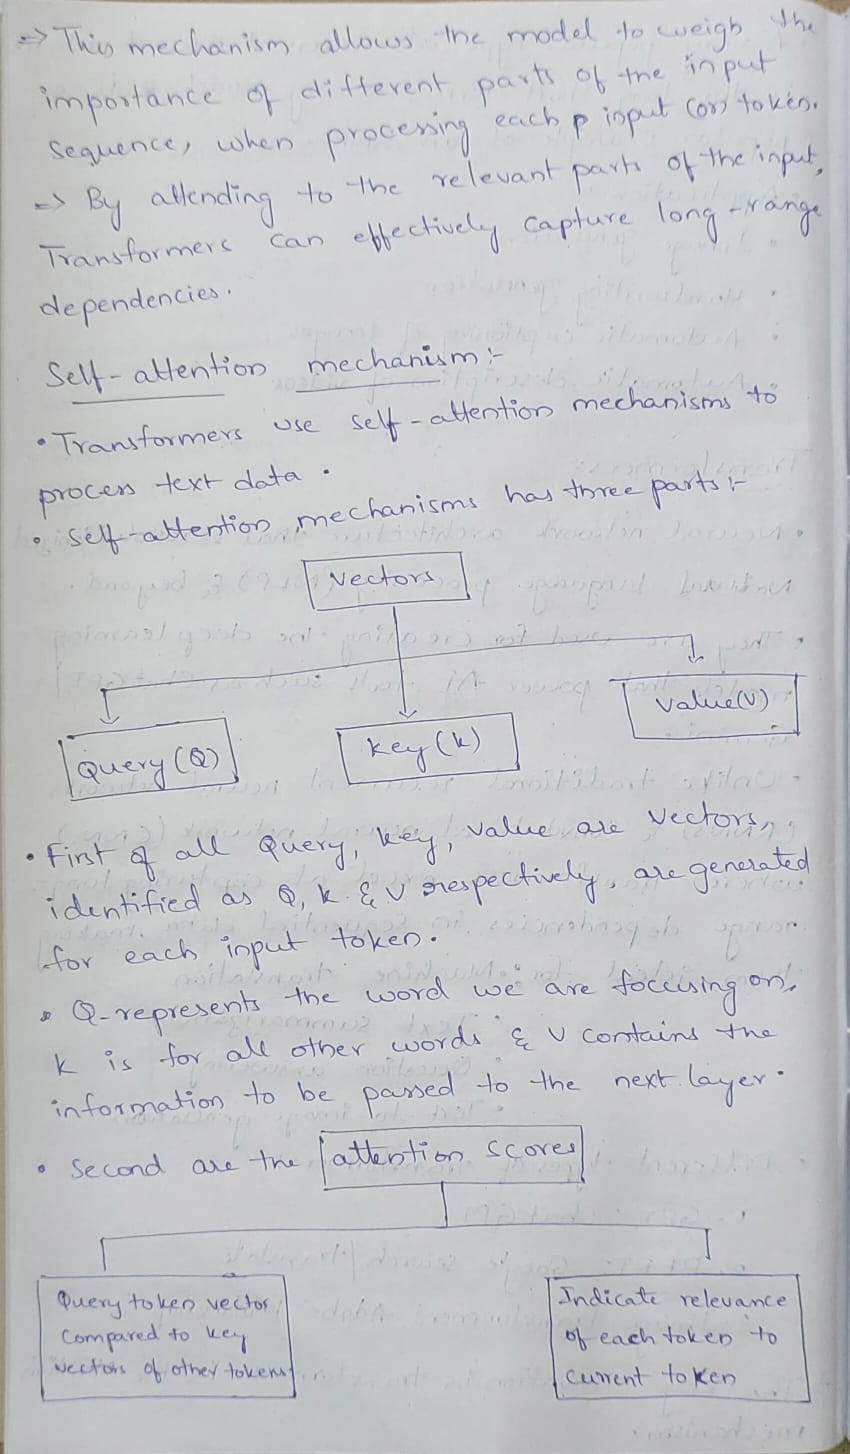 => This mechanism allows the model to weigh the
importance of different parts of the input
sequence, when processing each p input (or) token.
=> By attending to the relevant parts of the input,
Transformers can effectively capture long-range
dependencies.
Self-attention mechanism:-
• Transformers use self-attention mechanisms to
process text data.
• Self-attention mechanisms has three parts:-
Vectors
Query (Q)
Key (k)
Value(V)
• First of all Query, key, value are vectors,
identified as Q, k & V respectively, are generated
for each input token.
• Q-represents the word we are foccusing on,
k is for all other words & V contains the
information to be passed to the next layer.
• Second are the attention scores
Query token vector
compared to key
vectors of other tokens
Indicate relevance
of each token to
current token